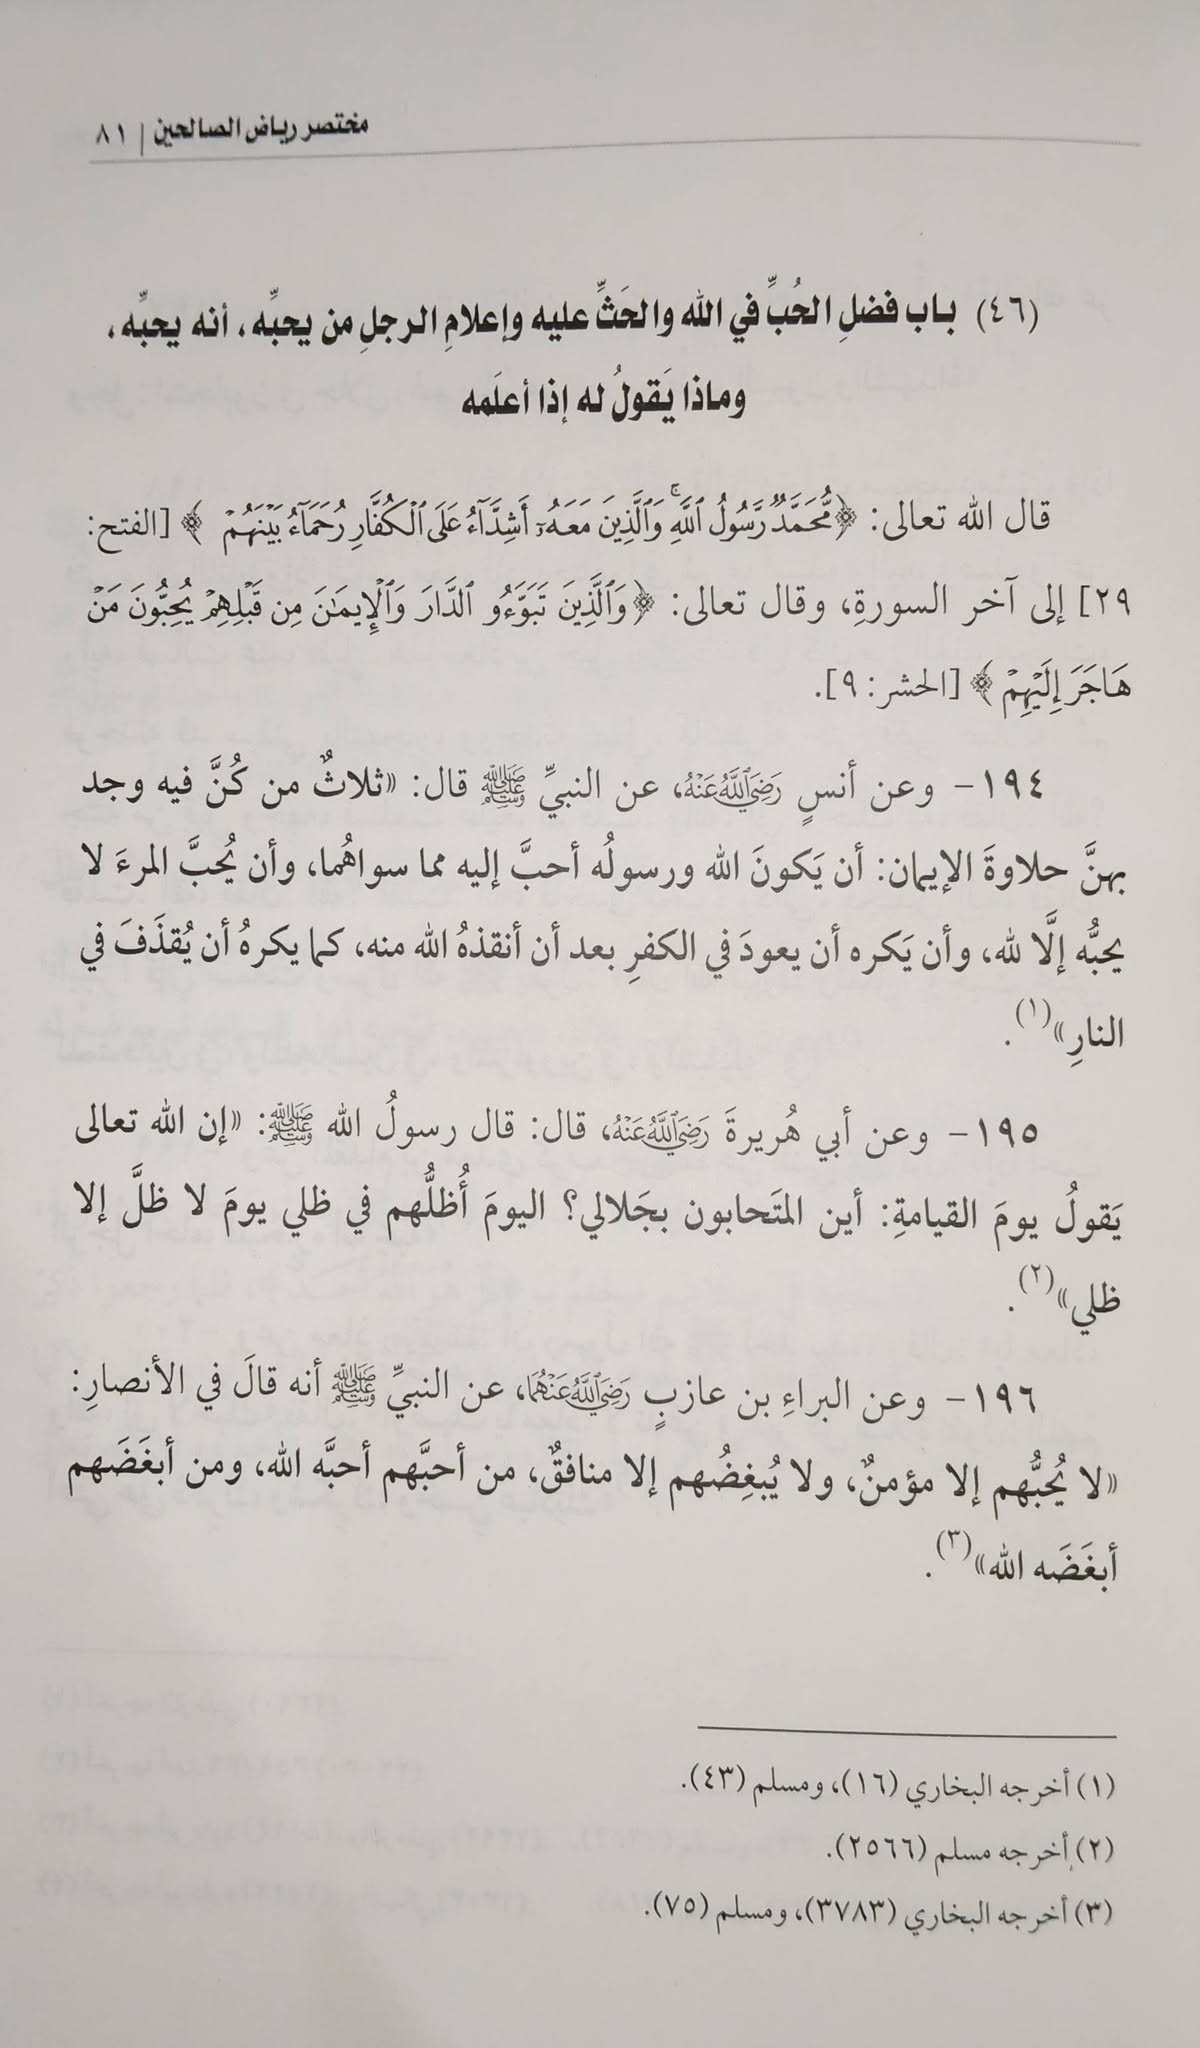 مختصر رياض الصالحين | ٨١
(٤٦) باب فضلِ الحُبِّ في الله والحَثِّ عليه وإعلامِ الرجلِ من يحبِّه، أنه يحبِّه،
وماذا يَقولُ له إذا أعلَمه
قال الله تعالى: ﴿مُّحَمَّدٌ رَّسُولُ ٱللَّهِۚ وَٱلَّذِينَ مَعَهُۥٓ أَشِدَّآءُ عَلَى ٱلۡكُفَّارِ رُحَمَآءُ بَيۡنَهُمۡ ﴾ [الفتح:
٢٩] إلى آخر السورةِ، وقال تعالى: ﴿وَٱلَّذِينَ تَبَوَّءُو ٱلدَّارَ وَٱلۡإِيمَٰنَ مِن قَبۡلِهِمۡ يُحِبُّونَ مَنۡ
هَاجَرَ إِلَيۡهِمۡ ﴾ [الحشر: ٩].
١٩٤- وعن أنسٍ رَضِيَٱللَّهُعَنْهُ، عن النبيِّ ﷺ قال: «ثلاثٌ من كُنَّ فيه وجد
بهنَّ حلاوةَ الإيمان: أن يَكونَ الله ورسولُه أحبَّ إليه مما سواهُما، وأن يُحبَّ المرءَ لا
يحبُّه إلَّا لله، وأن يَكره أن يعودَ في الكفرِ بعد أن أنقذهُ الله منه، كما يكرهُ أن يُقذَفَ في
النارِ»(١).
١٩٥- وعن أبي هُريرةَ رَضِيَٱللَّهُعَنْهُ، قال: قال رسولُ الله ﷺ: «إن الله تعالى
يَقولُ يومَ القيامةِ: أين المتَحابون بجَلالي؟ اليومَ أُظلُّهم في ظلي يومَ لا ظلَّ إلا
ظلي»(٢).
١٩٦- وعن البراءِ بن عازبٍ رَضِيَٱللَّهُعَنْهُمَا، عن النبيِّ ﷺ أنه قالَ في الأنصارِ:
«لا يُحبُّهم إلا مؤمنٌ، ولا يُبغِضُهم إلا منافقٌ، من أحبَّهم أحبَّه الله، ومن أبغَضَهم
أبغَضَه الله»(٣).
(١) أخرجه البخاري (١٦)، ومسلم (٤٣).
(٢) أخرجه مسلم (٢٥٦٦).
(٣) أخرجه البخاري (٣٧٨٣)، ومسلم (٧٥).